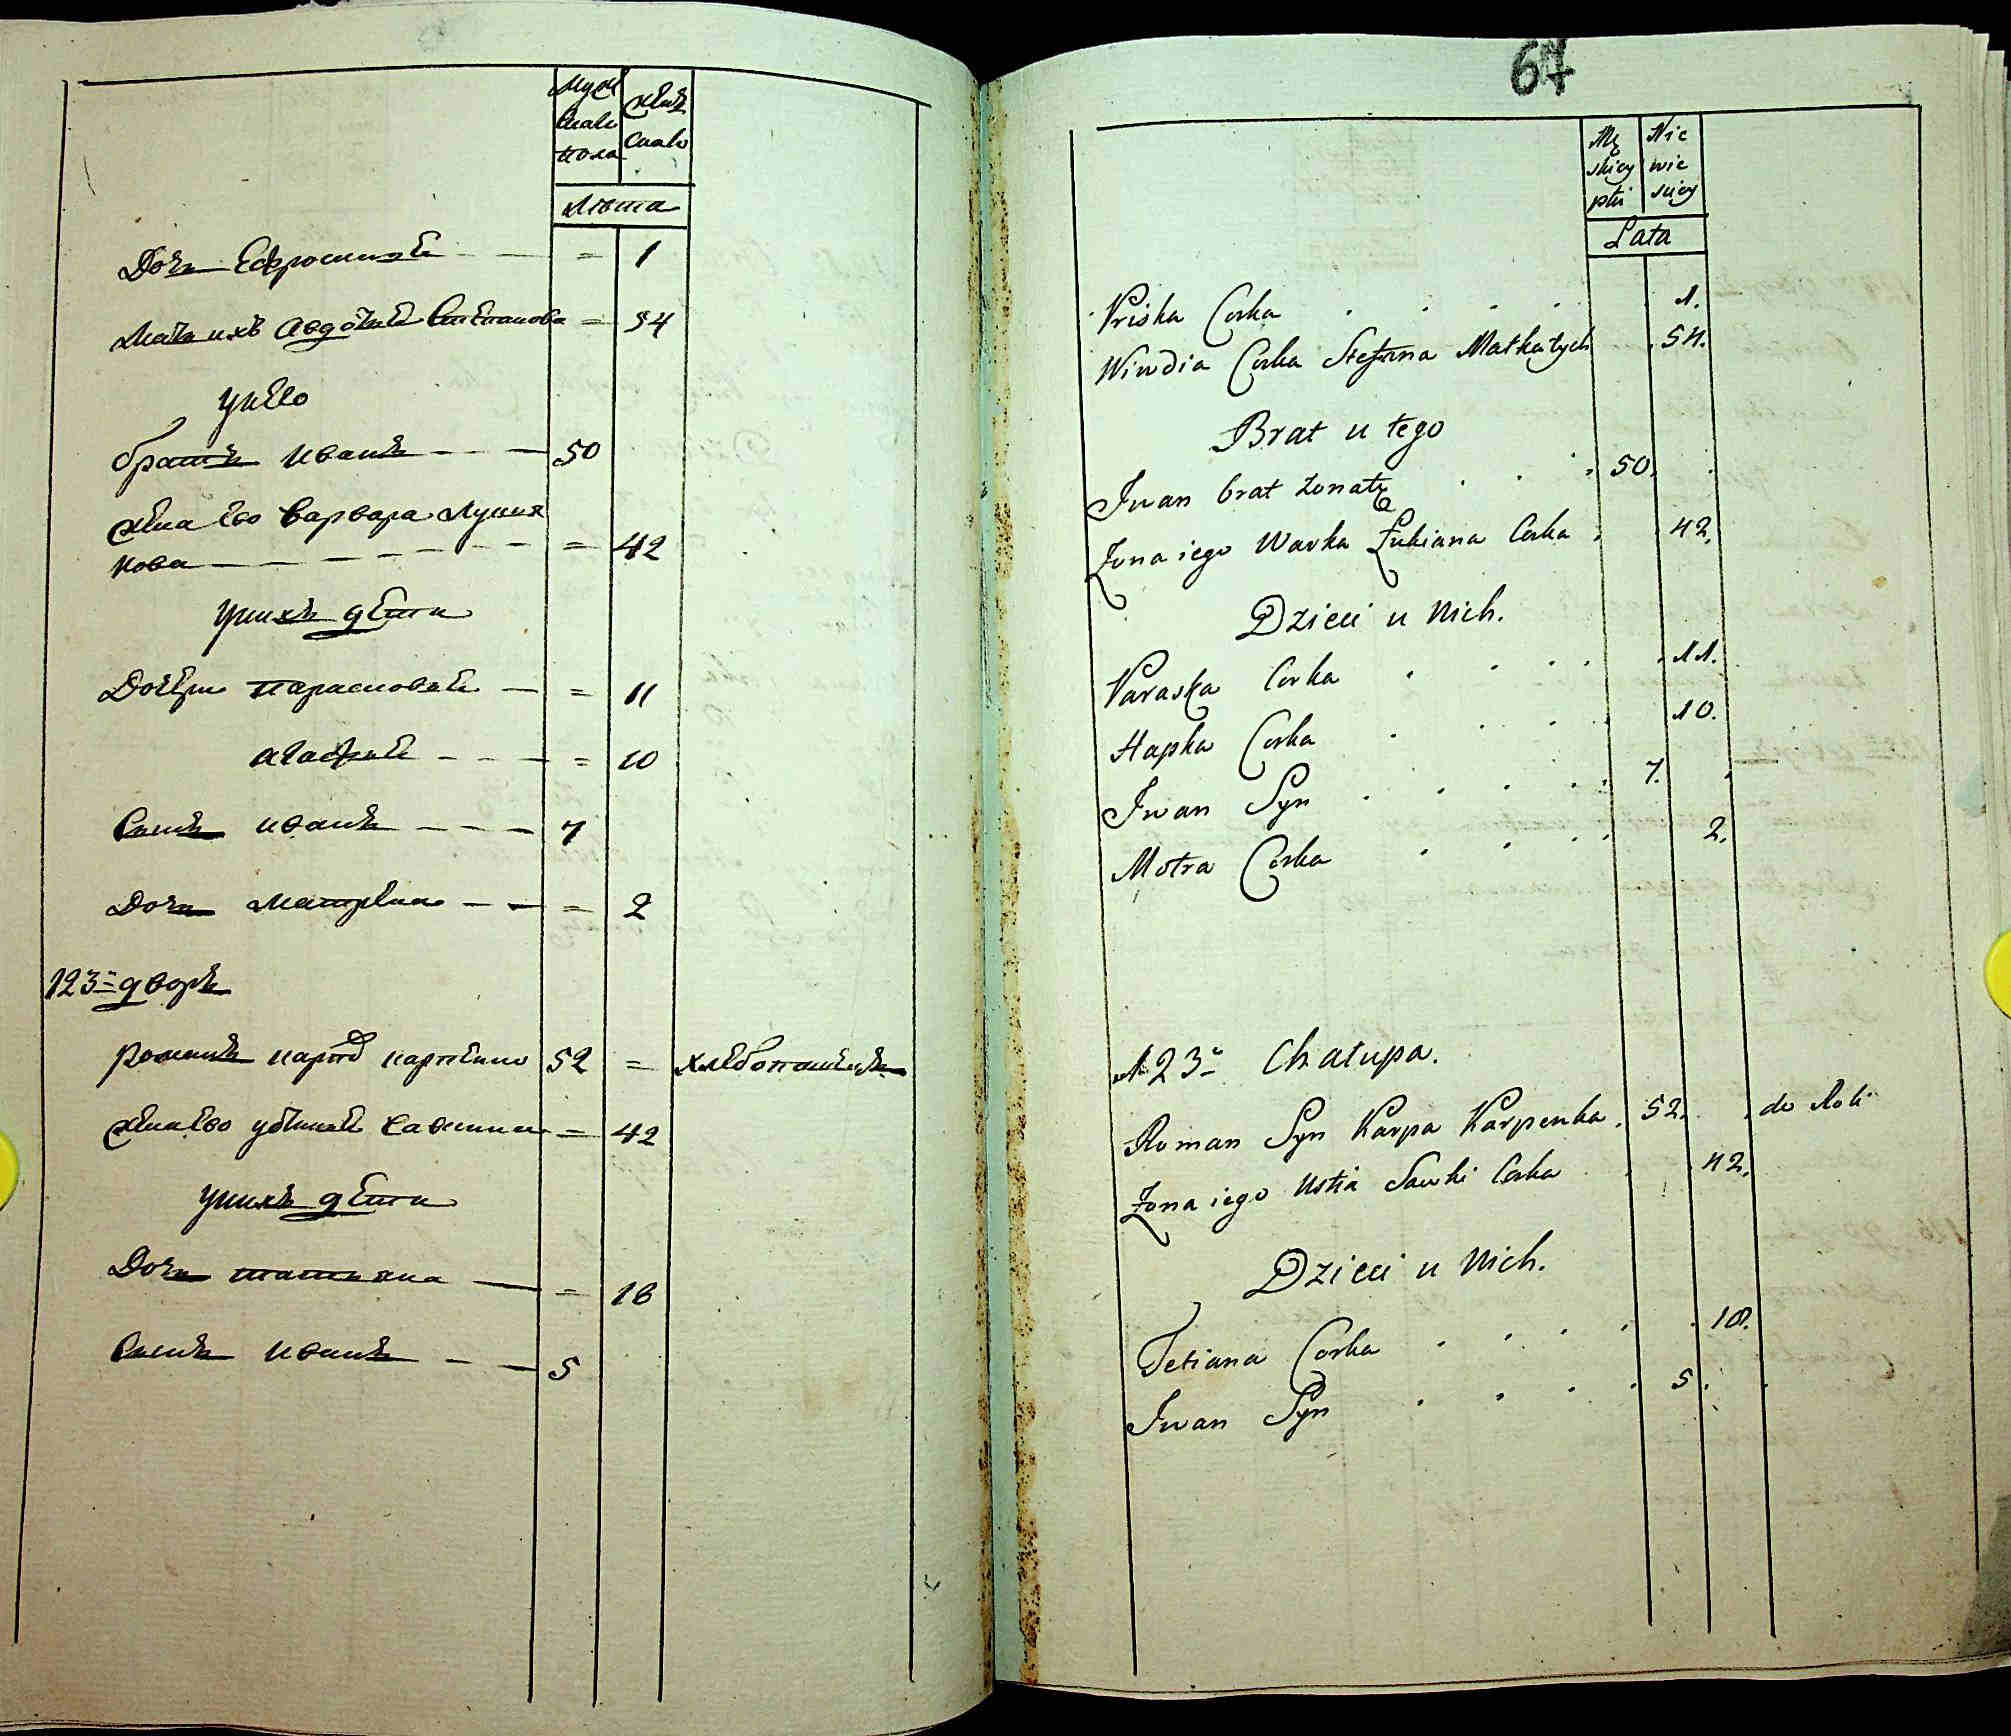 Муж
жен
скаго
скаго
пола
лѣта
Дочь Ефросинія = 1
Мать ихъ Авдотія Степанова = 54
У него
братъ Иванъ 50
жена его Варвара Лукия
нова = 42
У нихъ дѣти
Дочери Парасковія = 11
Агафія = 10
Сынъ Иванъ 7
Дочь Матрена = 2
123й дворъ
Романъ Карпов Карпенко 52 = хлебопашецъ
жена его Устинія Савина = 42
У нихъ дѣти
Дочь Татьяна = 18
Сынъ Иванъ 5
67
Mę Nie
skiey wie
płci sciey
Lata
Priska Corka . . . . 1.
Wiwdia Corka Stefana Matka tych . 54.
Brat u tego
Iwan brat żonatę . . . 50.
Żona iego Warka Łukiana Corka . 42.
Dzieci u Nich.
Paraska Corka . . . . 11.
Hapka Corka . . . . 10.
Iwan Syn . . . . 7.
Motra Corka . . . . 2.
123. Chałupa.
Roman Syn Karpa Karpenka . 52. . do Roli
Żona iego Ustia Sawki Corka . 42.
Dzieci u Nich.
Tetiana Corka . . . . 18.
Iwan Syn . . . . 5.